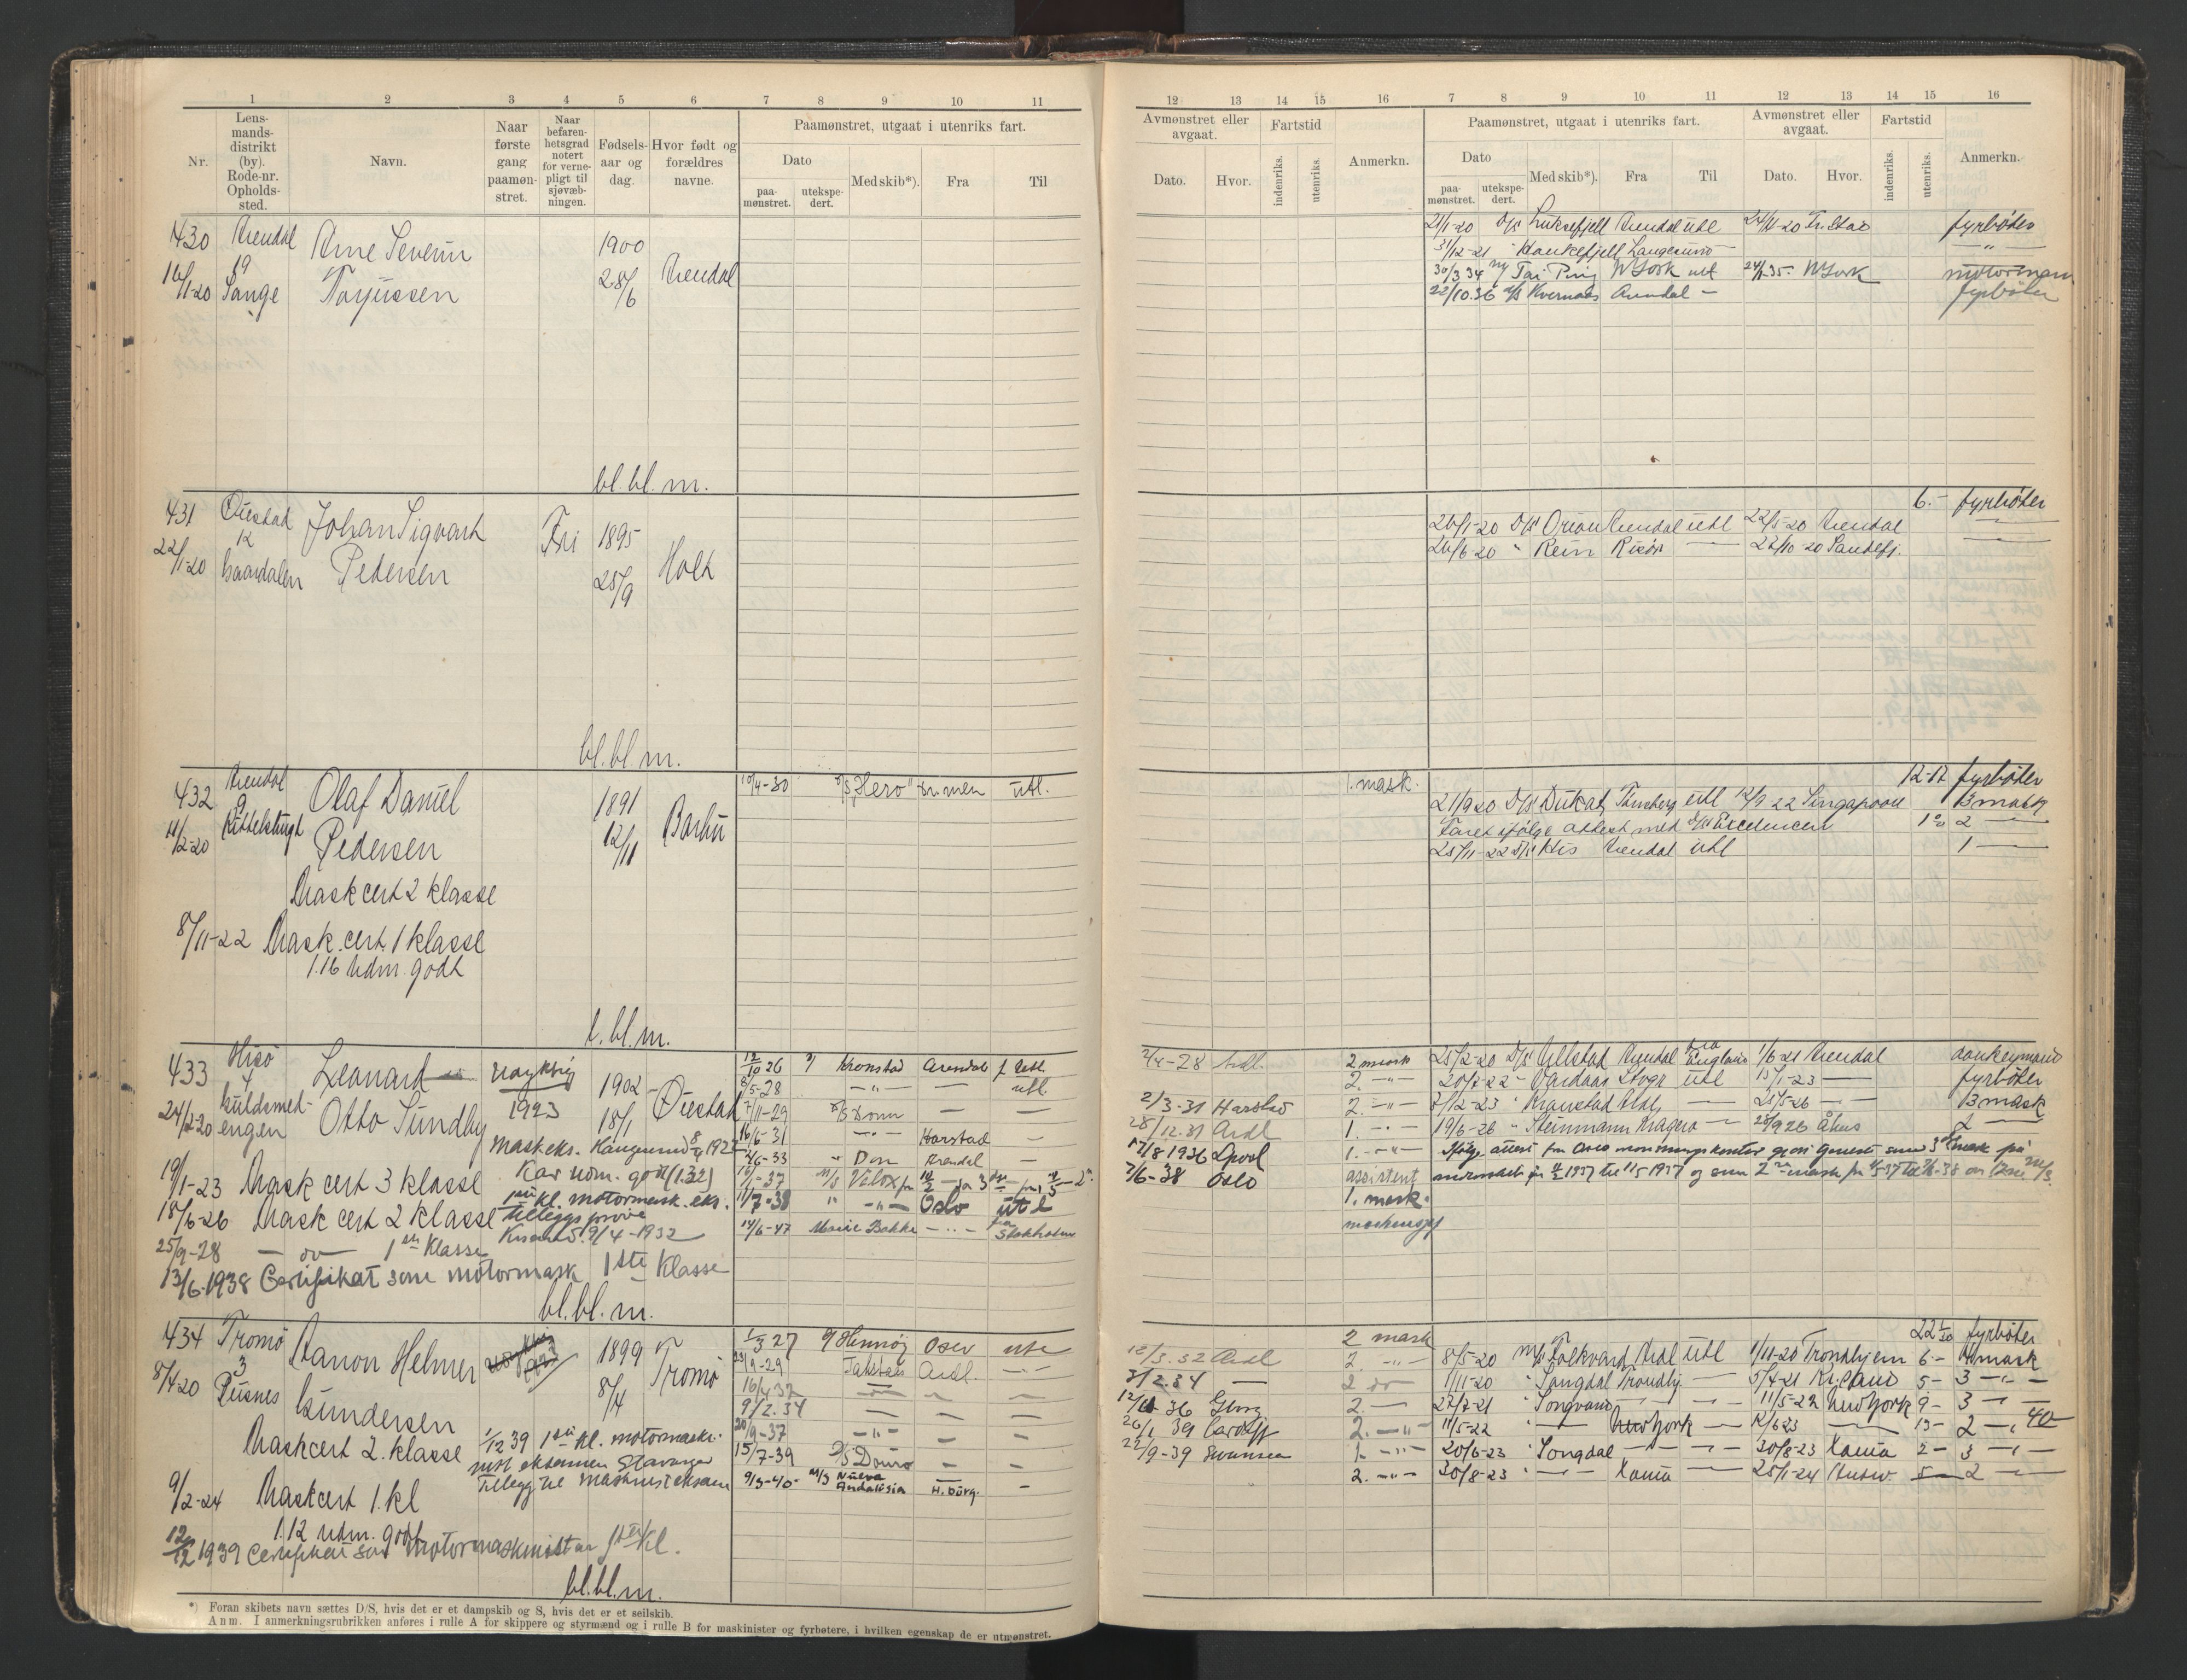 1 2 3 4 5 6 7 8 9 10 11
Nr.
Lens-
mands-
distrikt
(by).
Rode-nr.
Opholds-
sted.
Navn.
Naar
første
gang
paamøn-
stret.
Naar
befaren-
hetsgrad
notert
for verne-
pligt til
sjøvæb-
ningen.
Fødsels-
aar og
dag.
Hvor født og
forældres
navne.
Paamønstret, utgaat i utenriks fart.
Dato
paa-
mønstret.
utekspe-
dert.
Med skib*).
Fra
Til
430 Arendal Arne Severin 1900
16/1-20 19 Lange Torjussen 28/6 Arendal
bl.bl.m.
431 Øiestad Johan Sigvart Fri 1895
12
22/1-20 Pedersen 25/9 Holt
bl.bl.m.
432 Arendal Olaf Daniel 1891 10/4-30 D/S "Hero" utl.
9
11/2-20 Kittelsbugt Pedersen 12/11 Barbu
Mask cert 2 klasse
8/11-22 Mask. cert. 1 klasse
1.16 udm. godt
bl.m.
433 Hisø Leonard 1902 12/10 26 Kronstad Arendal
4 8/5-28 — " — utl.
24/2-20 engen Otto Sundby 1923 18/1 Øiestad 7/11-29 D/S Donn — —
16/6-31 — " — Harstad —
Mask.eks. 2/6-33 " Don Arendal —
19/1-23 Mask cert 3 klasse Kar udm. godt (1.32) 16/1-37 M/S Velox
1ste kl. motormask. eks. 11/7-38 " — " — Oslo utl
18/6-26 Mask cert 2 klasse tilleggsprøve
9/4-1932 14/6-47 Marie Bakke — " — Stokholm
25/9-28 — do — 1ste Klasse
13/6-1938 Certifikat som motormask 1ste Klasse
bl.bl.m.
434 Tromø Aanon Helmer 1899 1/3 27 Oslo
3
8/4-20 Pusnes Gundersen 8/4 Tromø 24/9-29 Ardl.
16/4 32
9/2.34 — — —
20/9-37 — " — — —
Maskcert 2. klasse 1/12 39 1ste kl. motormask. 15/7-39 D/S Douro — —
eksamen Stavanger
Tillegg til Maskinisteksam 9/3-40 M/S Nueva Andalusia H.burg. —
9/2-24 Maskcert 1. kl
1.12 udm. godt
12/12 1939 Certifikat som Motormaskinist 1ste Kl.
bl.bl.m.
*) Foran skibets navn sættes D/S, hvis det er et dampskib og S, hvis det er et seilskib.
Anm. I anmerkningsrubrikken anføres i rulle A for skippere og styrmænd og i rulle B for maskinister og fyrbøtere, i hvilken egenskap de er utmønstret.
12 13 14 15 16 7 8 9 10 11 12 13 14 15 16
Avmønstret eller
avgaat.
Dato.
Hvor.
Fartstid
indenriks.
utenriks.
Anmerkn.
Paamønstret, utgaat i utenriks fart.
Dato
paa-
mønstret.
utekspe-
dert.
Med skib*).
Fra
Til
Avmønstret eller
avgaat.
Dato.
Hvor.
Fartstid
indenriks.
utenriks.
Anmerkn.
21/1-20 D/S Luksefjell Arendal utl fyrbøter
31/12-21 " Haukefjell Langesund — — " —
30/3 34 Tai Ping N York utl 24/1 35 N York motormann
22/10.36 D/S Kvernaas Arendal — fyrbøter
6.- fyrbøter
26/1-20 D/S Orion Arendal utl 22/5-20 Arendal —
26/6-20 " Rein Risør — 22/10-20 Sandefj. —
12-12 fyrbøter
1. mask. 21/9 20 D/S Dukat Tønsberg utl 12/9 22 Singapore 3 mask
Faret ifølge attest med D/S Excelencen 2 —
25/11-22 D/S His Arendal utl 1 —
2/4-28 Ardl. 2 mask 25/2-20 D/S Ullstad Arendal England 1/6-21 Arendal donkeymand
2. — " — 20/2-22 " Vardaas utl 15/1-23 — fyrbøter
2/3-31 Harstad 2. — " — 2/12-23 " Kronstad — 25/5-26 — 3 mask
28/12.31 Ardl 1. — " — 19/6-26 " Steinmann — 25/9 26 Åhus 2 —
17/8 1936 Lpool 1. — " —
2/6-38 Oslo assistent
1. mask.
22 1/30 fyrbøter
2 mask
12/3.32 Ardl 2. — " — 8/5-20 Ardl utl 1/11-20 Trondhjem 6 -
3/2.34 — 2 do — 1/11-20 " Songdal Trondhj. — 5/7-21 5 - 3 — " —
36 Gbrg 2. — 22/7-21 " Songvand — 11/5-22 New York 9 - 3 — " —
26/1 39 Cardiff 2. — " — 11/5-22 " — New York — 12/6 23 — 13 - 2 — 40
22/9-39 Swansea 1. — " — 20/6-23 " Songdal — 30/8-23 2 - 3 — " —
2. — " — 30/8-23 " — — 25/1-24 5 2 —